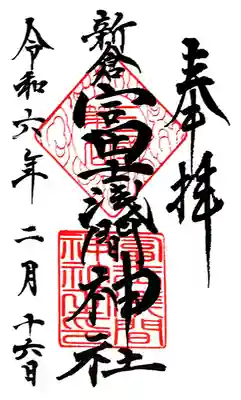 奉拝
新倉富士浅間神社
令和六年二月十六日